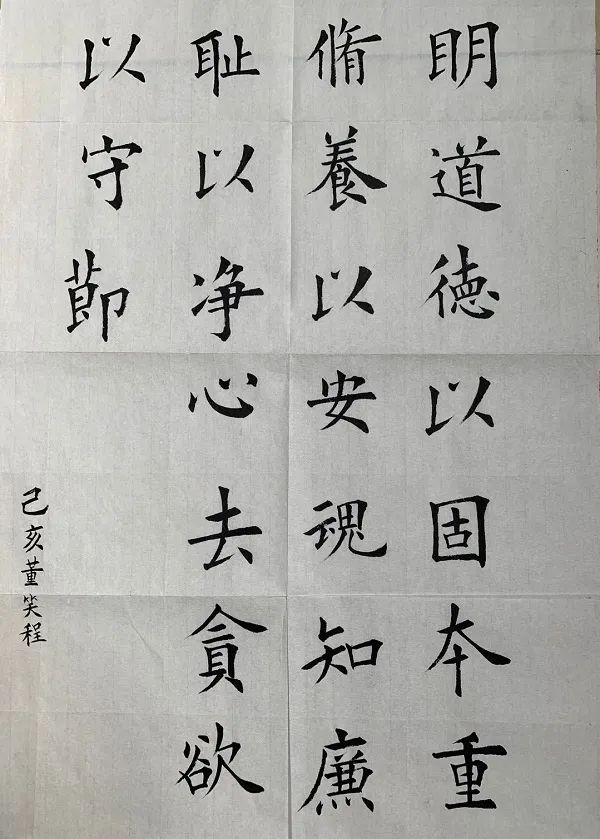 明道徳以固本重
脩養以安魂知廉
耻以净心去貪欲
以守節
己亥董笑程